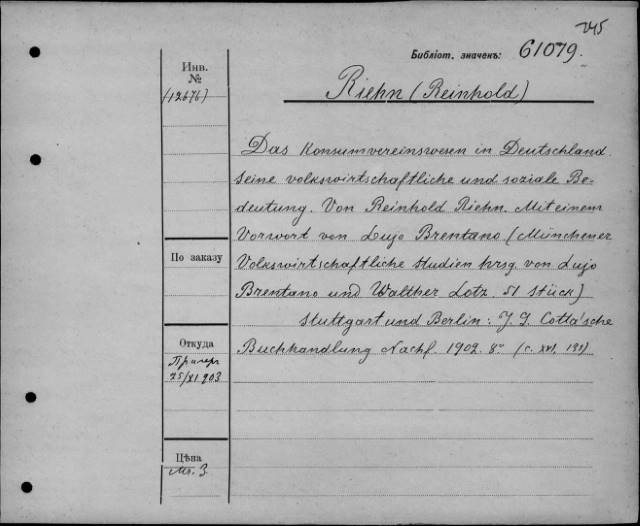 245
Библіот. значекъ: 61079.
Инв.
№
(12676)
Riehn (Reinhold)
Das Konsumvereinswesen in Deutschland
seine volkswirtschaftliche und soziale Be-
deutung. Von Reinhold Riehn. Mit einem
Vorwort von Lujo Brentano (Münchener
Volkswirtschaftliche Studien hrsg. von Lujo
Brentano und Walther Lotz. 51 Stück)
Stuttgart und Berlin: J. G. Cotta'sche
Buchhandlung Nachf. 1902. 8º (с. XVI,
По заказу
Откуда
25/XI 903
Цѣна
Mk. 3.